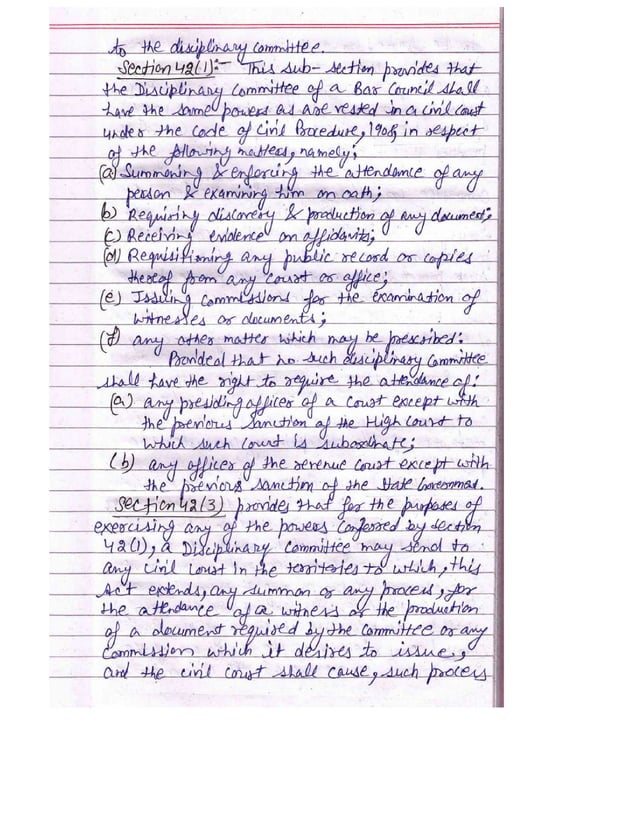 to the disciplinary committee.
Section 42(1):- This sub-section provides that
the Disciplinary Committee of a Bar Council shall
have the same powers as are vested in a civil court
under the Code of Civil Procedure, 1908, in respect
of the following matters, namely;
(a) Summoning & enforcing the attendance of any
person & examining him on oath;
b) Requiring discovery & production of any document;
(c) Receiving evidence on affidavits;
(d) Requisitioning any public record or copies
thereof from any court or office;
(e) Issuing Commissions for the examination of
witnesses or documents;
(f) any other matter which may be prescribed:
Provided that no such disciplinary Committee
shall have the right to require the attendance of:
(a) any presiding officer of a Court except with
the previous Sanction of the High Court to
which such Court is subordinate;
(b) any officer of the revenue Court except with
the previous sanction of the State Government.
Section 42(3) provides that for the purposes of
exercising any of the powers Conferred by section
42(1), a Disciplinary Committee may send to
any Civil Court in the territories to which, this
Act extends, any summon or any process, for
the attendance of a witness or the production
of a document required by the committee or any
Commission which it desires to issue,
and the civil court shall cause, such process